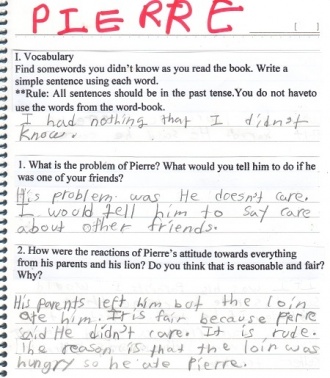 PIERRE
[ ]
I. Vocabulary
Find somewords you didn't know as you read the book. Write a
simple sentence using each word.
**Rule: All sentences should be in the past tense.You do not haveto
use the words from the word-book.
I had nothing that I didnot
know.
1. What is the problem of Pierre? What would you tell him to do if he
was one of your friends?
His problem. was He doesn't care.
I would tell him to say care
about other friends.
2. How were the reactions of Pierre's attitude towards everything
from his parents and his lion? Do you think that is reasonable and fair?
Why?
His parents left him but the loin
ate him. It is fair because Pierre
said He didn't care. It is rude.
The reason is that the loin was
hungry so he ate Pierre.